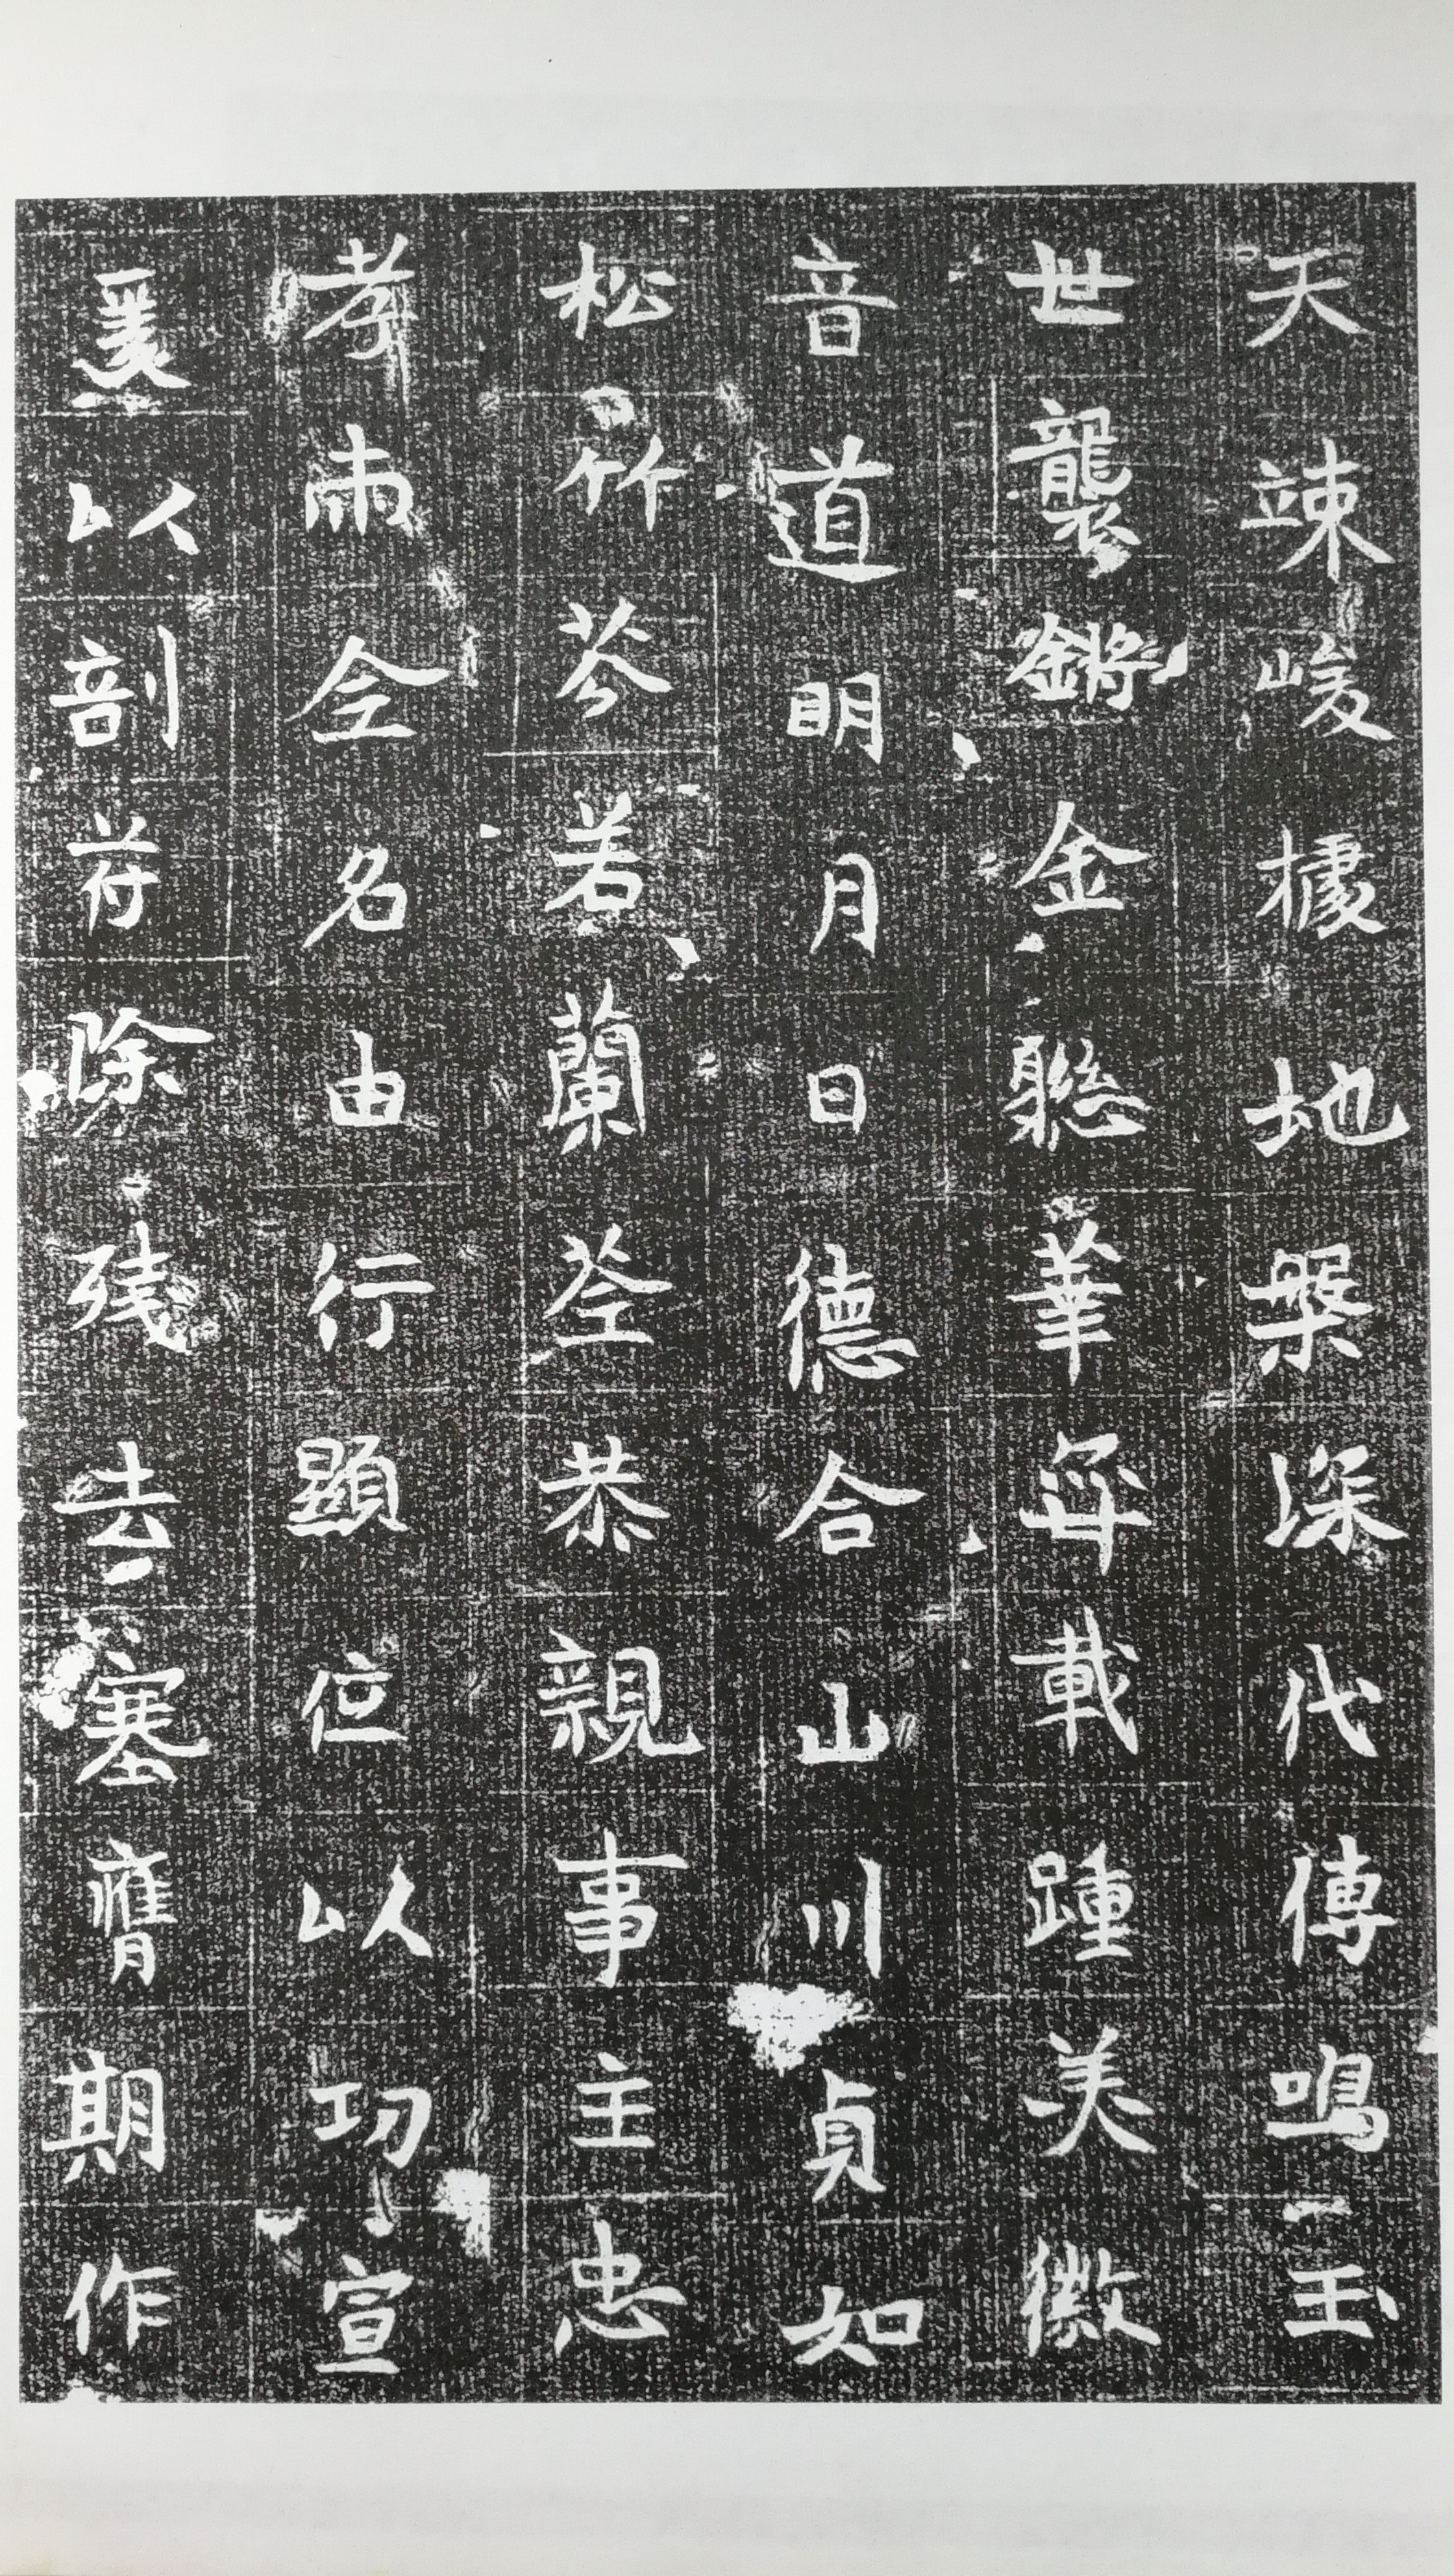 天竦峻據地槃深代傳鳴玉
世襲鏘金聯華弈載踵美徽
音道明月日德合山川貞如
松竹芬若蘭荃恭親事主忠
孝兩全名由行顯位以功宣
爰以剖符除殘去塞膺期作